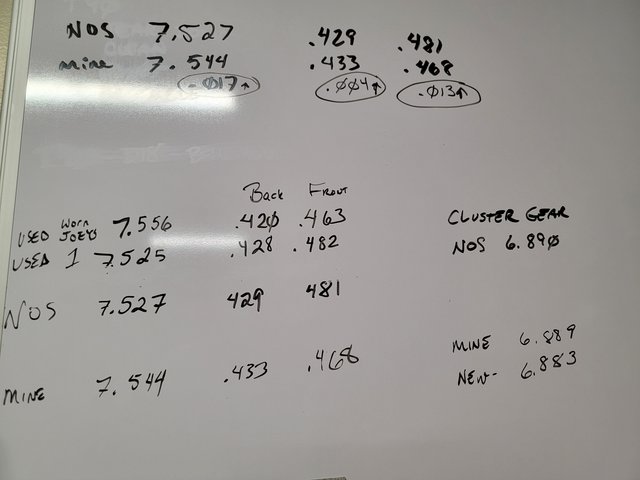 NOS 7.527 .429 .481
mine 7.544 .433 .468
.017↑ .004↑ .013↑
Back Front
USED Worn JOEYS 7.556 .420 .463 CLUSTER GEAR
USED 1 7.525 .428 .482 NOS 6.890
NOS 7.527 429 481
MINE 6.889
MINE 7.544 .433 .468 NEW- 6.883